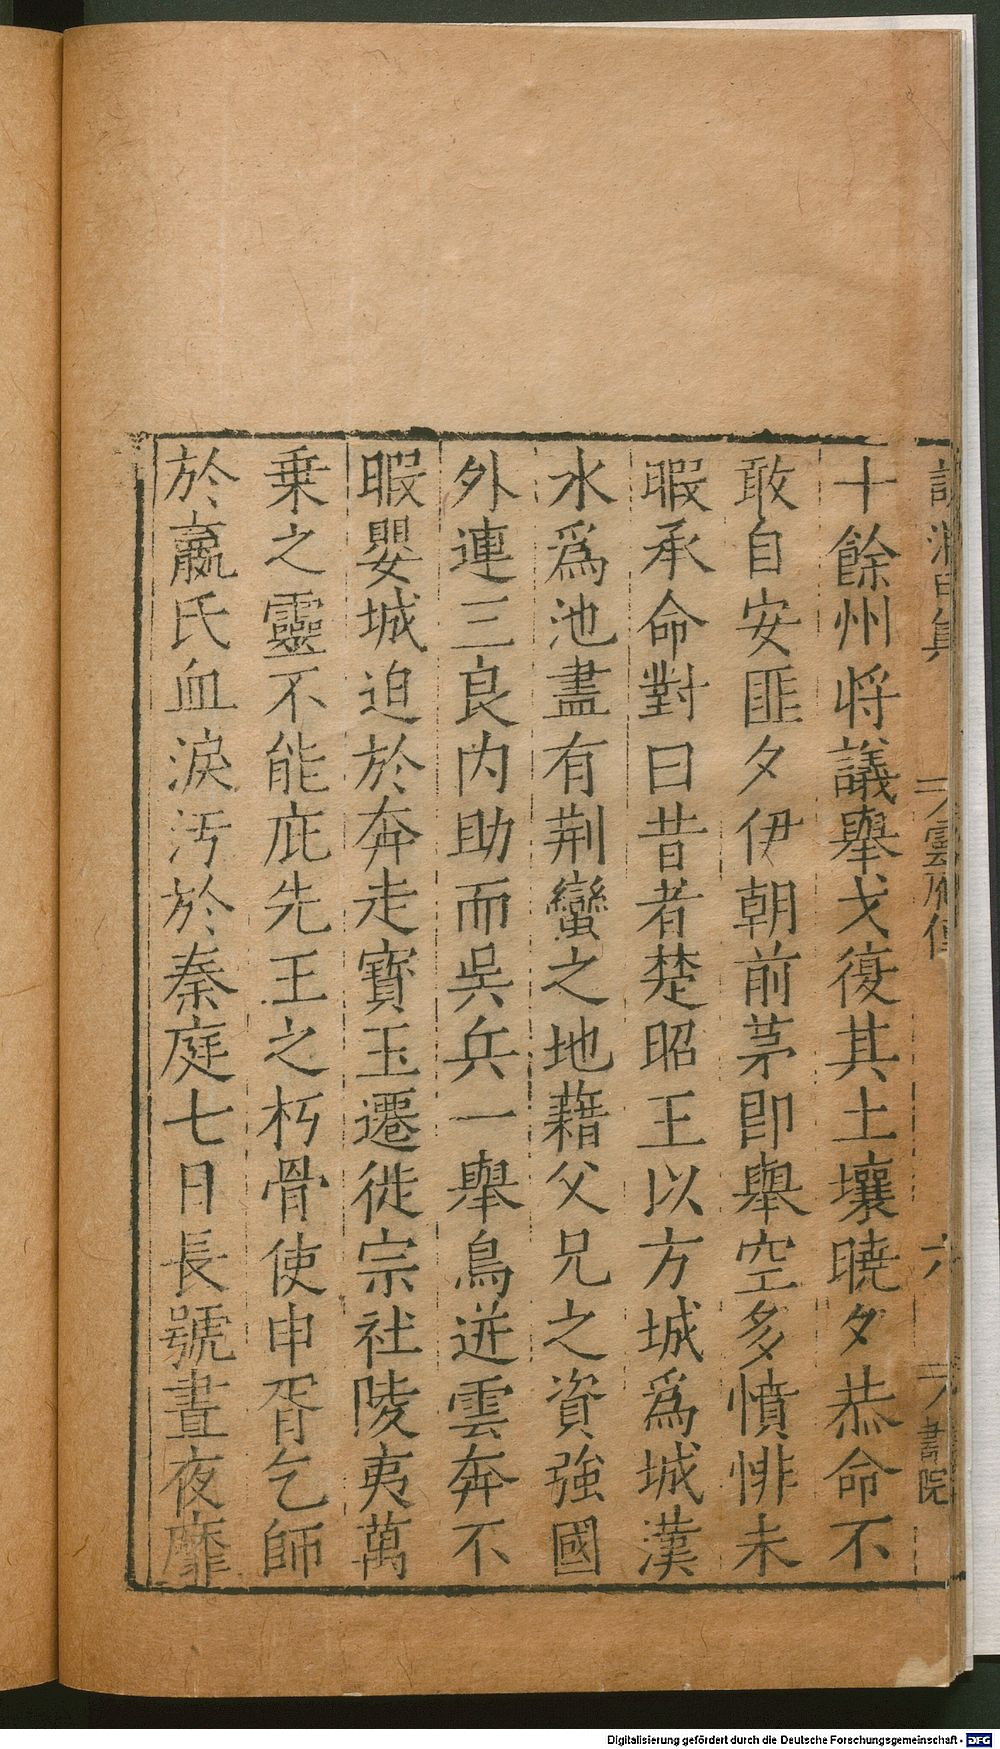 雲府傳
六
書院
十餘州将議舉戈復其土壤曉夕恭命不
敢自安匪夕伊朝前茅即舉空多憤悱未
暇承命對曰昔者楚昭王以方城爲城漢
水爲池盡有荆蠻之地藉父兄之資強國
外連三良内助而吳兵一舉鳥迸雲奔不
暇嬰城迫於奔走寳玉遷徙宗社陵夷萬
乗之靈不能庇先王之朽骨使申胥乞師
於嬴氏血淚汚於秦庭七日長號晝夜靡
Digitalisierung gefördert durch die Deutsche Forschungsgemeinschaft - DFG